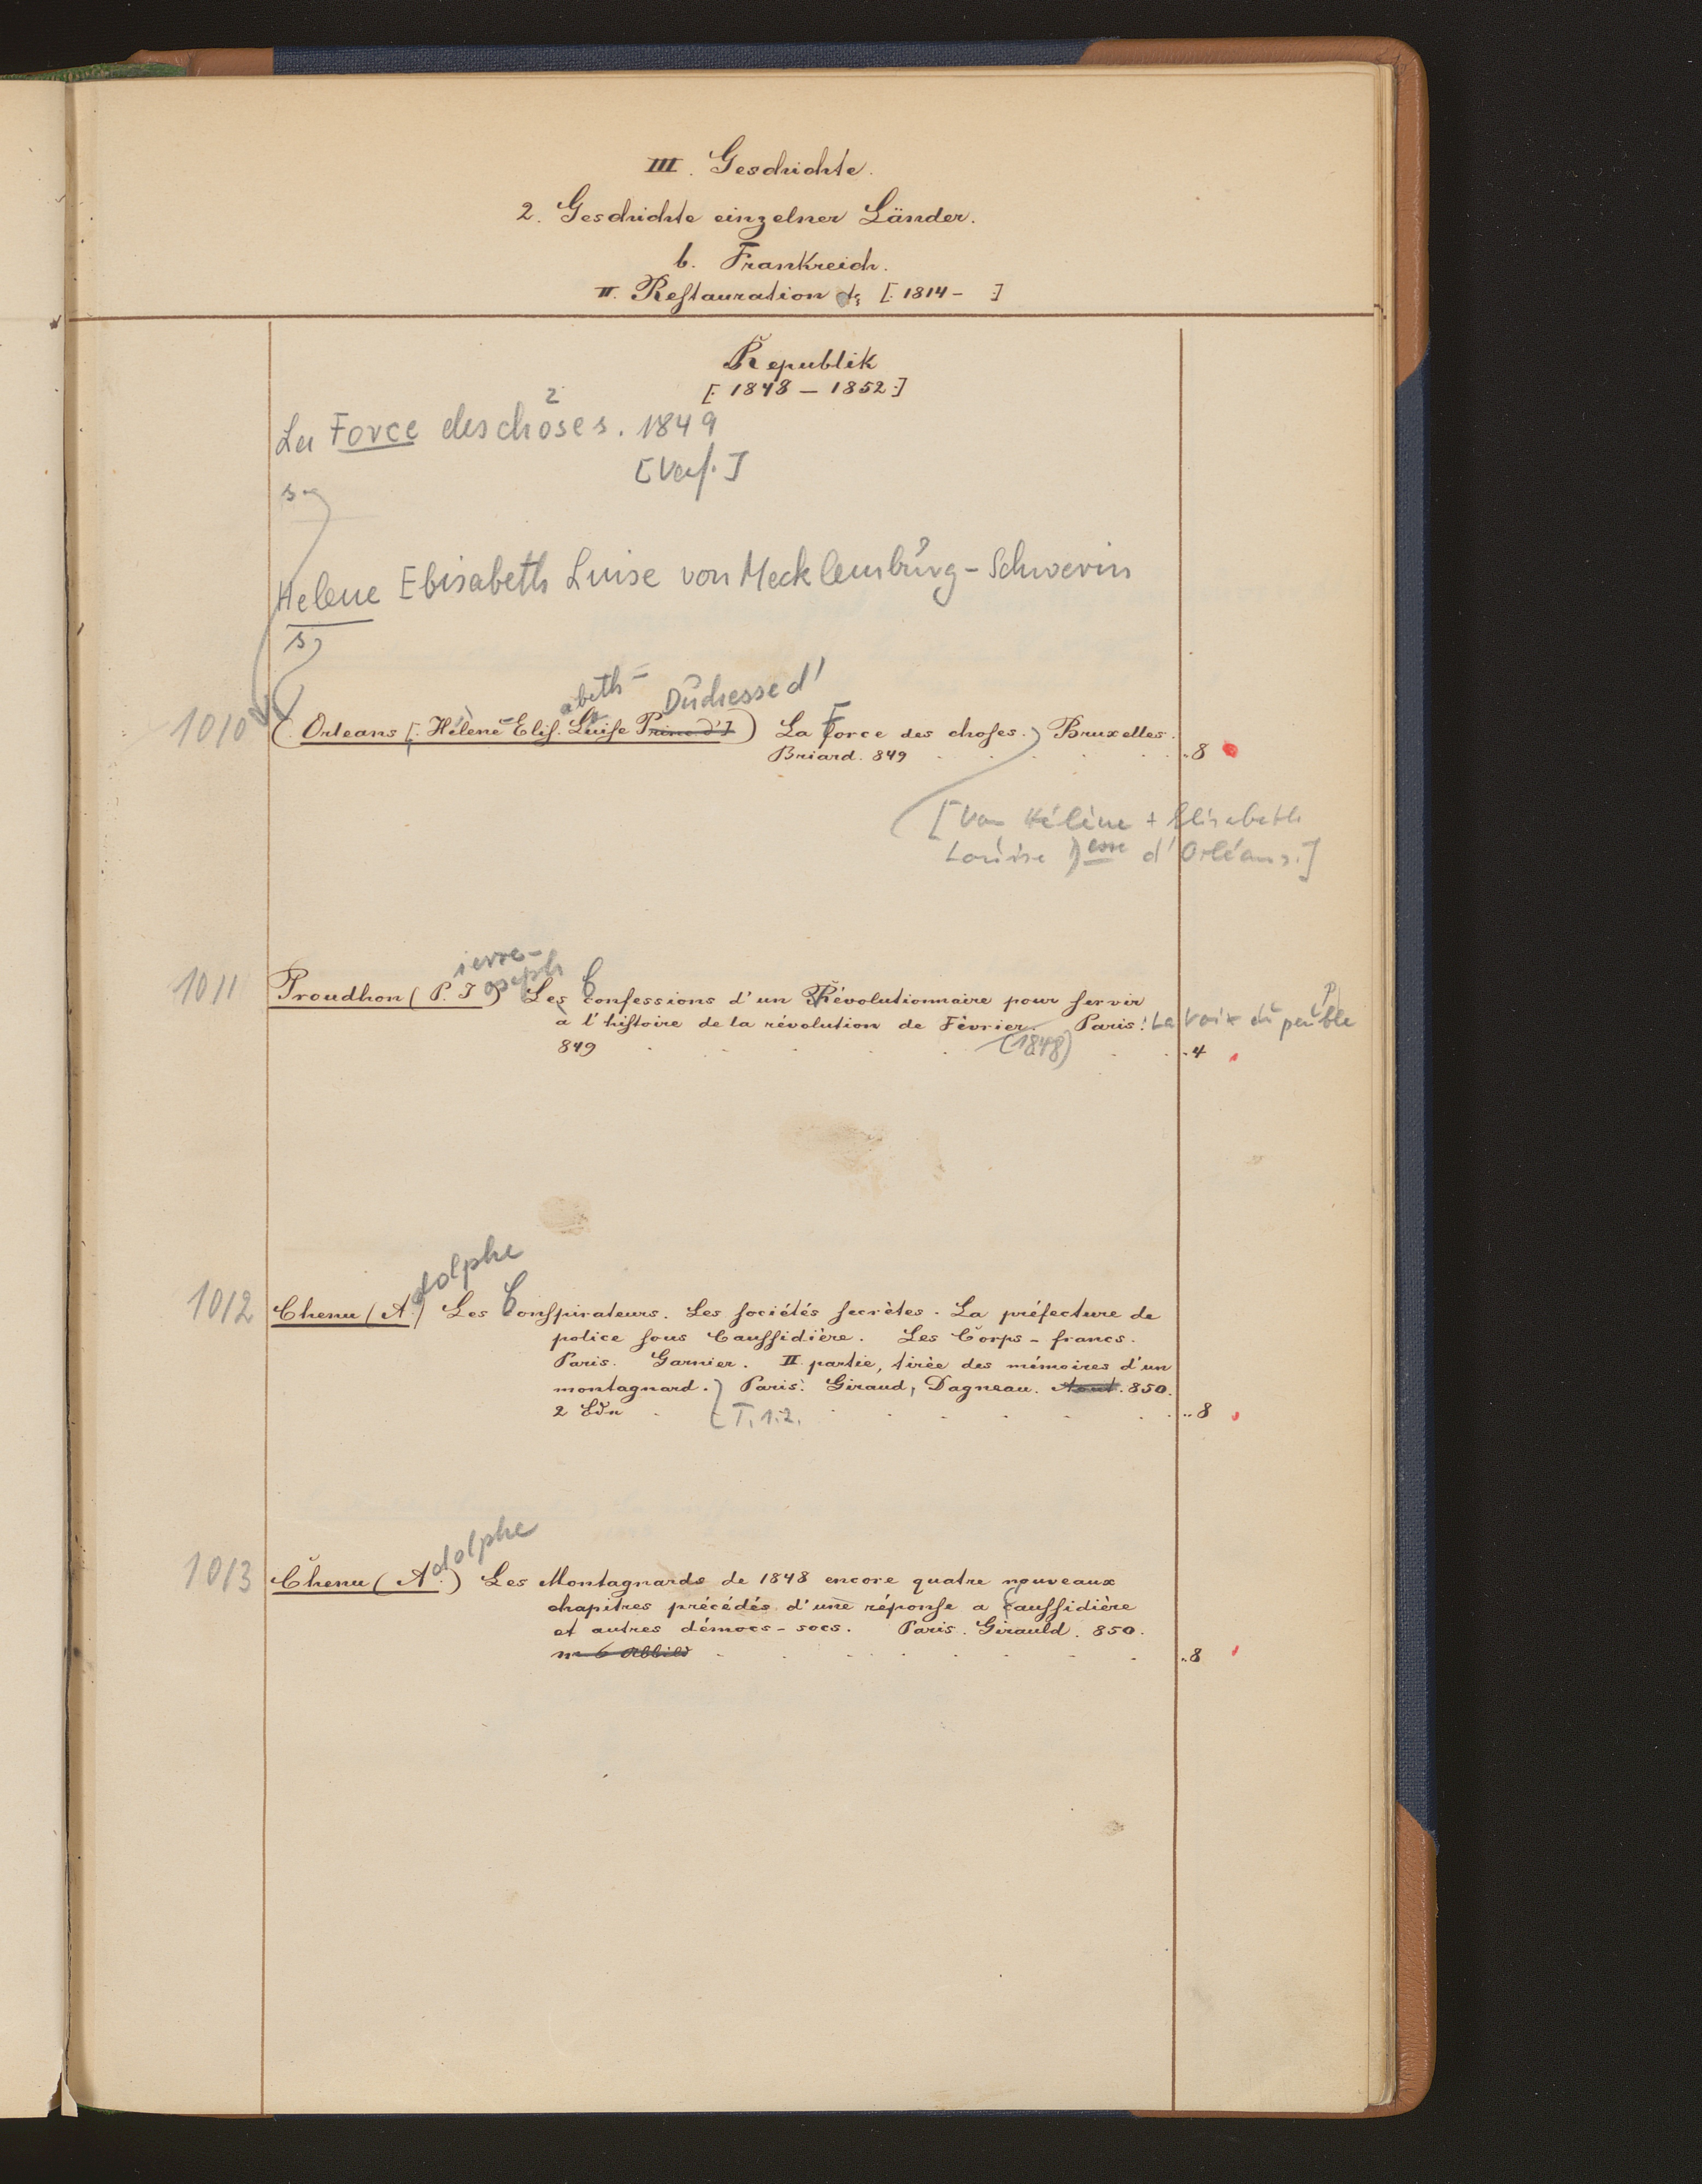 III. Geschichte.
2. Geschichte einzelner Länder.
b. Frankreich.
II. Restauration [: 1814 – :]
Republik
[: 1848 – 1852 :]
2
La Force des choses. 1849
[Verf.]
s.
Helene Elisabeth Luise von Mecklemburg-Schwerin
s.
abeth- Duchesse d'
1010 (Orleans [: Hélène-Elis. Luise Princ. d' :]) La Force des choses. Bruxelles.
Briard. 849 . . . . . ..8
[Von Hélène + Elisabeth
Louise Desse d'Orléans.]
ierre-
oseph
1011 Proudhon (P. J.) Les Confessions d'un Révolutionnaire pour servir
à l'histoire de la révolution de Février. Paris: La Voix du peuple
849 . . . . . (1848) . . ..4
dolphe
1012 Chenu (A.) Les Conspirateurs. Les sociétés secrètes. La préfecture de
police sous Caussidière. Les Corps-francs.
Paris. Garnier. II. partie, tirée des mémoires d'un
montagnard. Paris: Giraud, Dagneau. Aout. 850.
2 Bdn . T. 1.2. . . . . . ..8
dolphe
1013 Chenu (A.) Les Montagnards de 1848 encore quatre nouveaux
chapitres précédés d'une réponse a Caussidière
et autres démocs-socs. Paris. Girauld. 850.
m. 6 Abbild . . . . . . . ..8